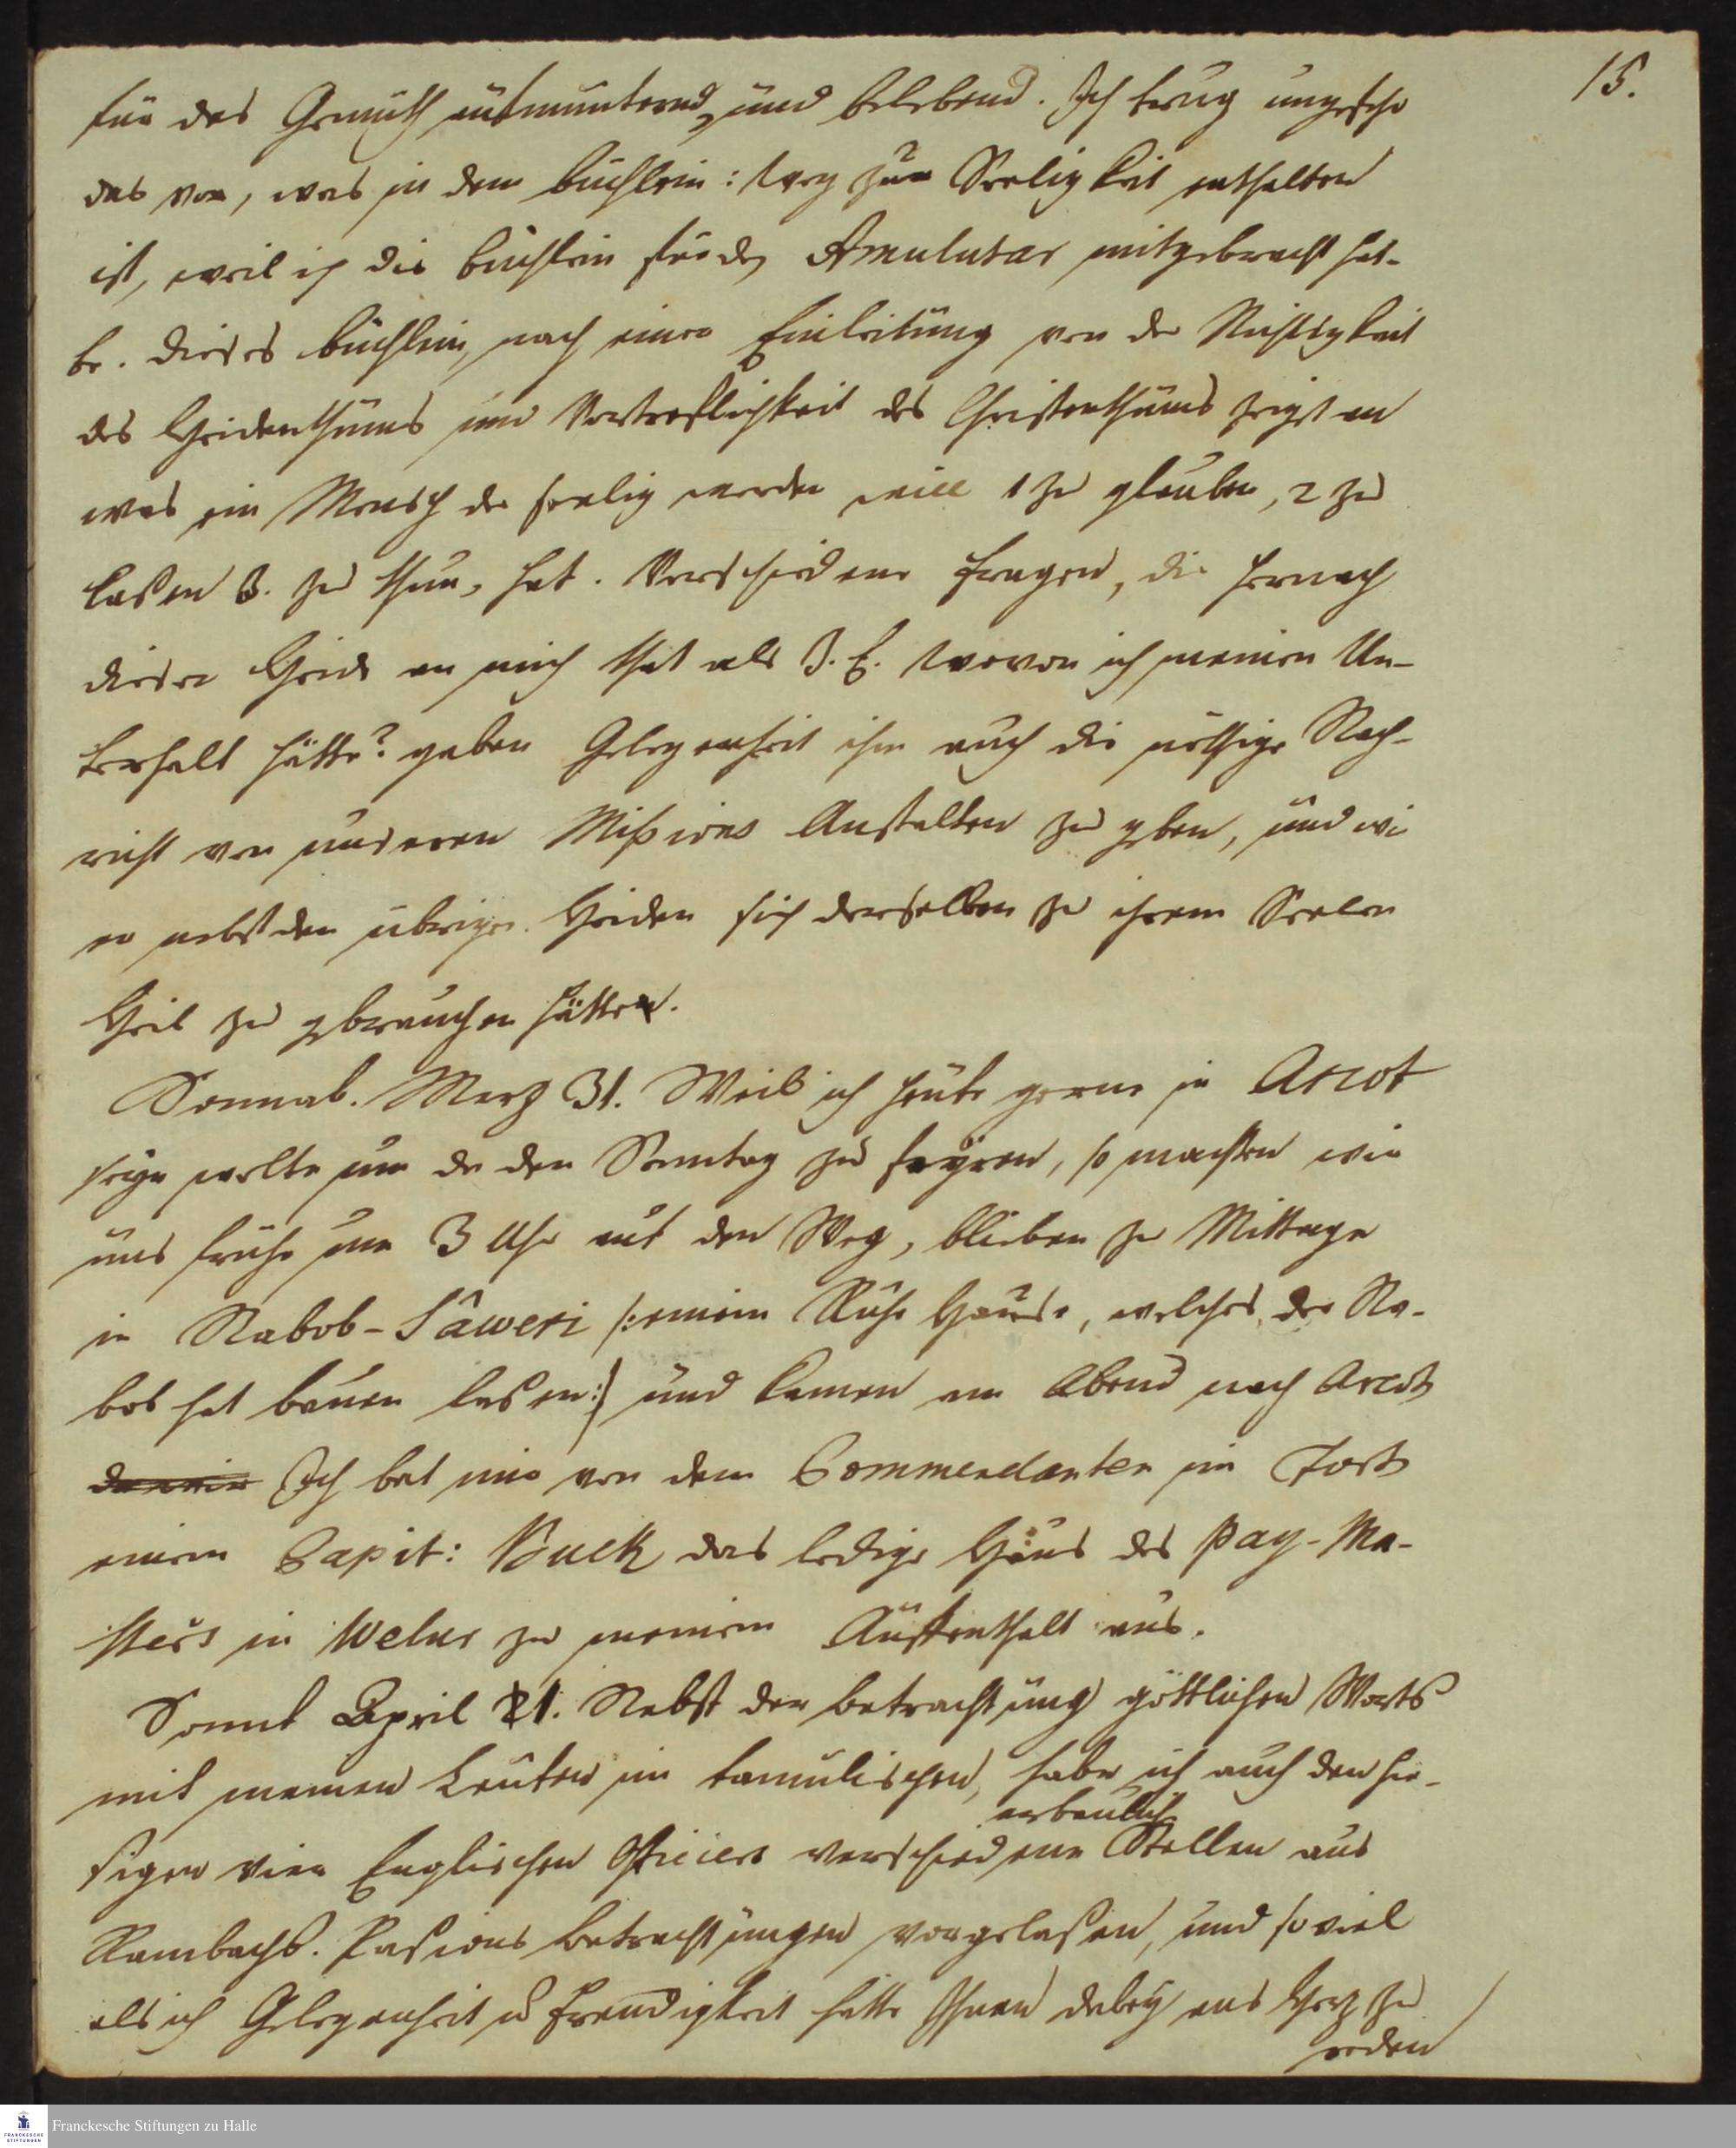 15.
für das Gemüth aufmunternd, und belebend. Ich trug ungefehr
das vor, was in dem büchlein: Weg zur Seeligkeit enthalten
ist, weil ich die büchlein für den Amulutar mitgebracht hat-
te. dieses büchlein, nach einer Einleitung von der Nichtigkeit
des Heidenthums und Vortreflichkeit des Christenthums zeigt an
was ein Mensch der seelig werden will 1 zu glauben, 2 zu
laßen 3. zu thun, hat. Verschiedene fragen, die hernach
dieser Heide an mich that als Z. E. Wovon ich meinen Un-
terhalt hätte? gaben Gelegenheit ihm auch die nöthige Nach-
richt von unseren Mißions Anstalten zu geben, und wie
er nebst den übrigen Heiden sich derselben zu ihrem Seelen
Heil zu gebrauchen hätten.
Sonnab. Merz 31. Weil ich heute gerne in Arcot
seyn wolte um da den Sonntag zu feyren, so machten wir
uns frühe um 3 Uhr auf den Weg, blieben zu Mittage
in Nabob-Sâweri /: einem Ruhe Hause, welches der Na-
bob hat bauen laßen :/ und kamen am Abend nach Arcot
Ich bat mir von dem Commendanten im Fort
einem Capit: Buck das ledige Haus des Pay-Ma-
sters in Welur zu meinem Auffenthalt aus.
Sonnt April 1. Nebst der betrachtung göttlichen Worts
mit meinen Leuten im tamulischen, habe ich auch den hie-
sigen vier Englischen Officiers verschiedene erbauliche Stellen aus
Rambachs. Paßions betrachtungen vorgelesen, und so viel
als ich Gelegenheit u freudigkeit hatte Ihnen dabey ans Herz zu
reden
Franckesche Stiftungen zu Halle